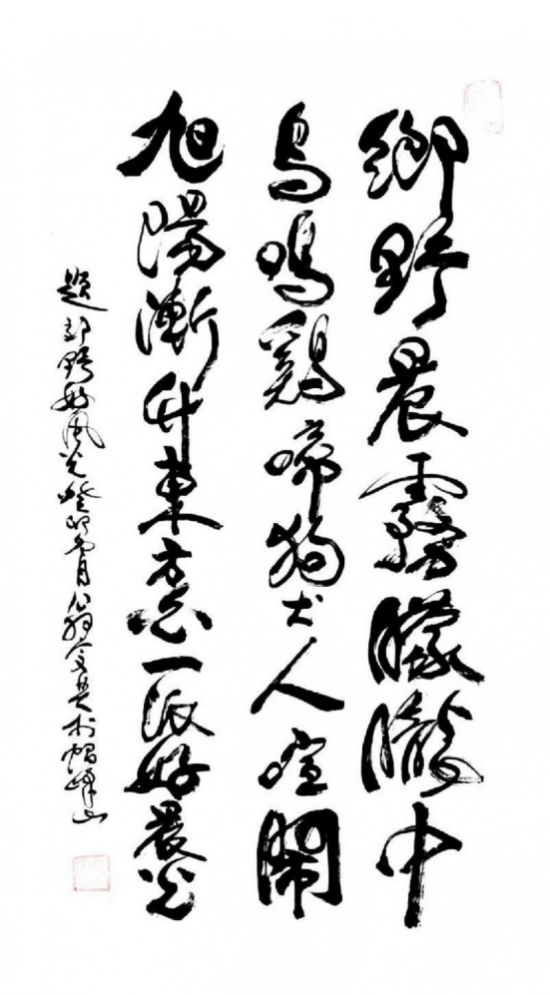 鄉野晨霧朦朧中
鳥鳴鷄啼狗犬人喧鬧
旭陽漸升東方忐一派好晨光
題鄉野好風光癸卯 月 翁 文 於帽峰山